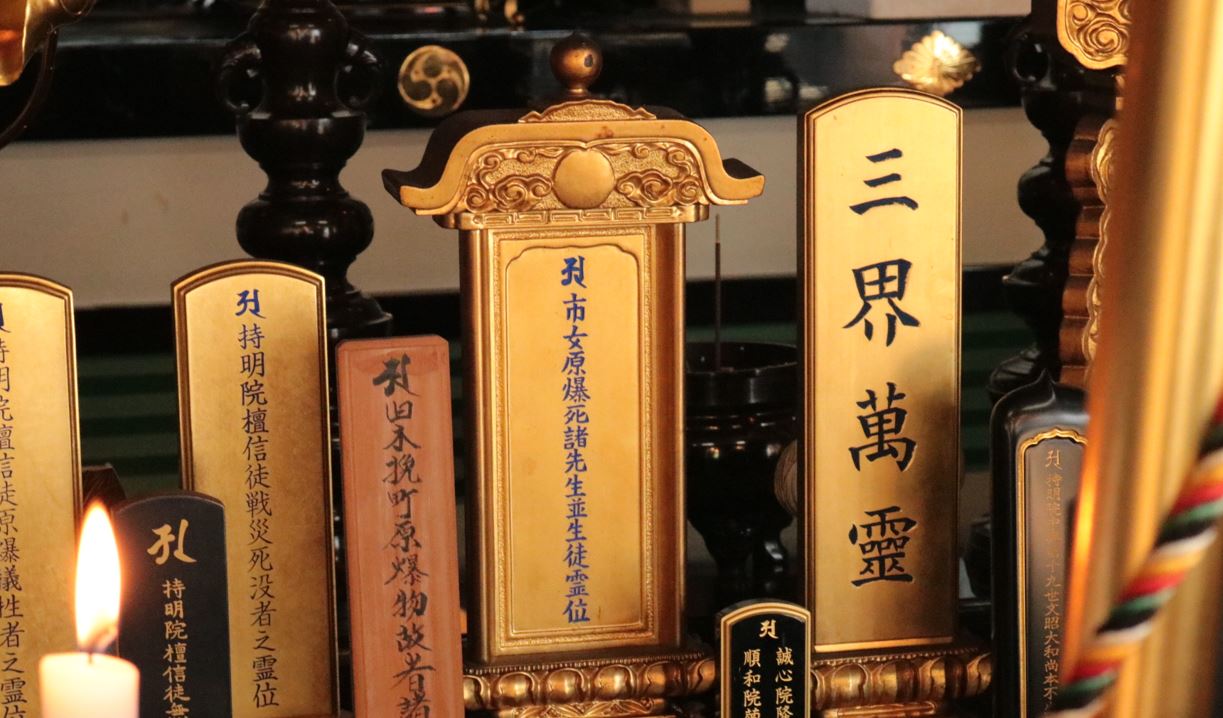 三界萬靈
市女原爆死諸先生並生徒霊位
旧木挽町原爆物故者諸
持明院檀信徒戦災死没者之霊位
持明院檀信徒
持明院檀信徒原爆犠牲者之霊位
誠心院隆
順和院